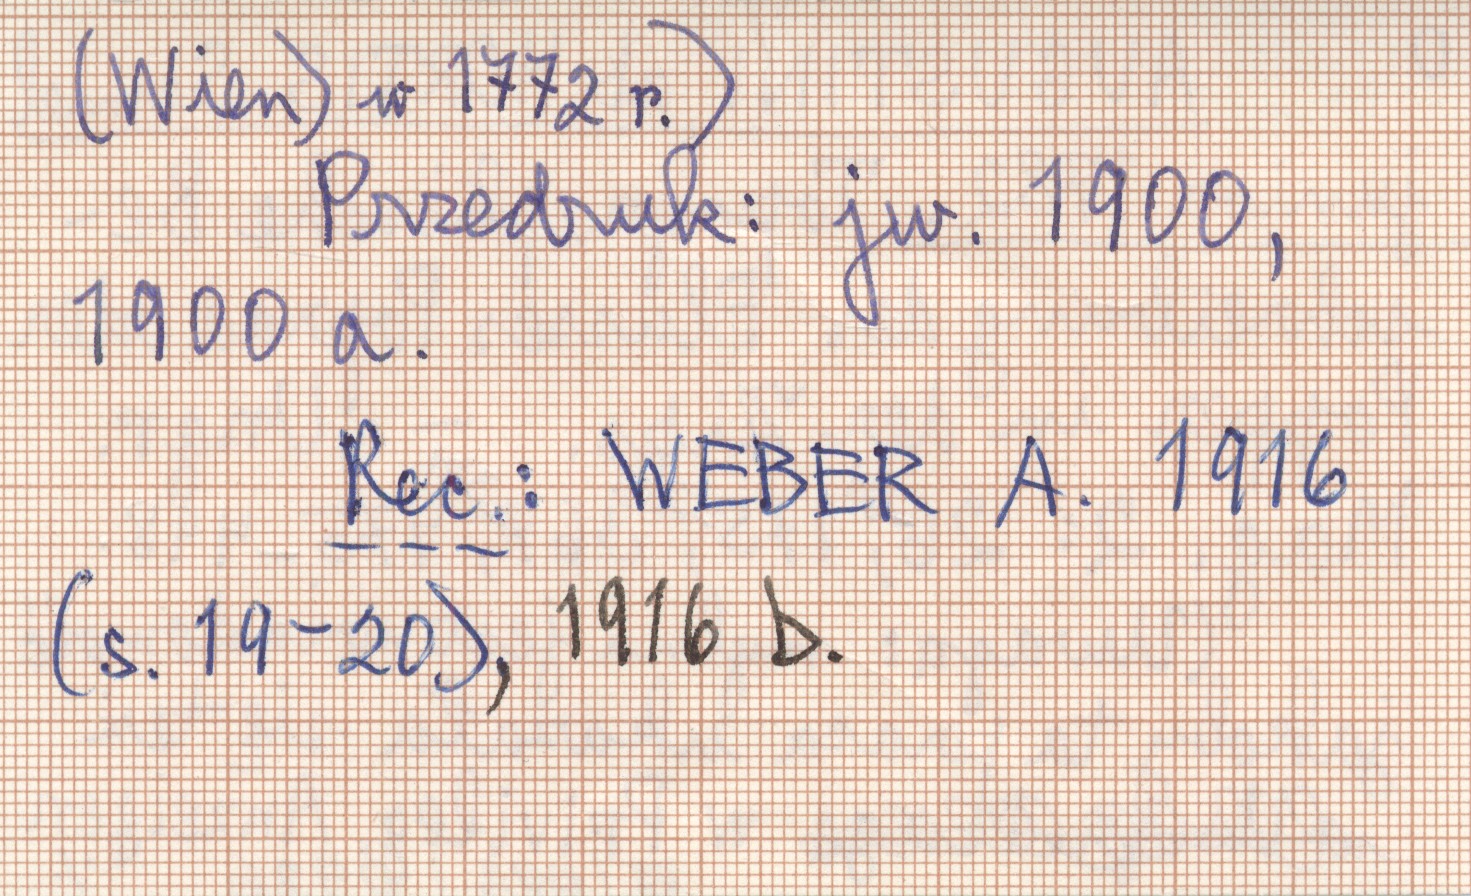 (Wien) w 1772 r.)
Przedruk: jw. 1900,
1900 a.
Rec.: WEBER A. 1916
(s. 19-20), 1916 b.